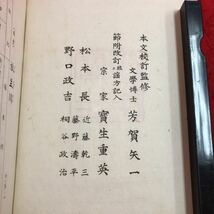 本文校訂監修
文學博士 芳賀矢一
節附改訂並謡方記入
宗家 寶生重英
松本長 近藤乾三
藤野濤平
野口政吉 桐谷政治